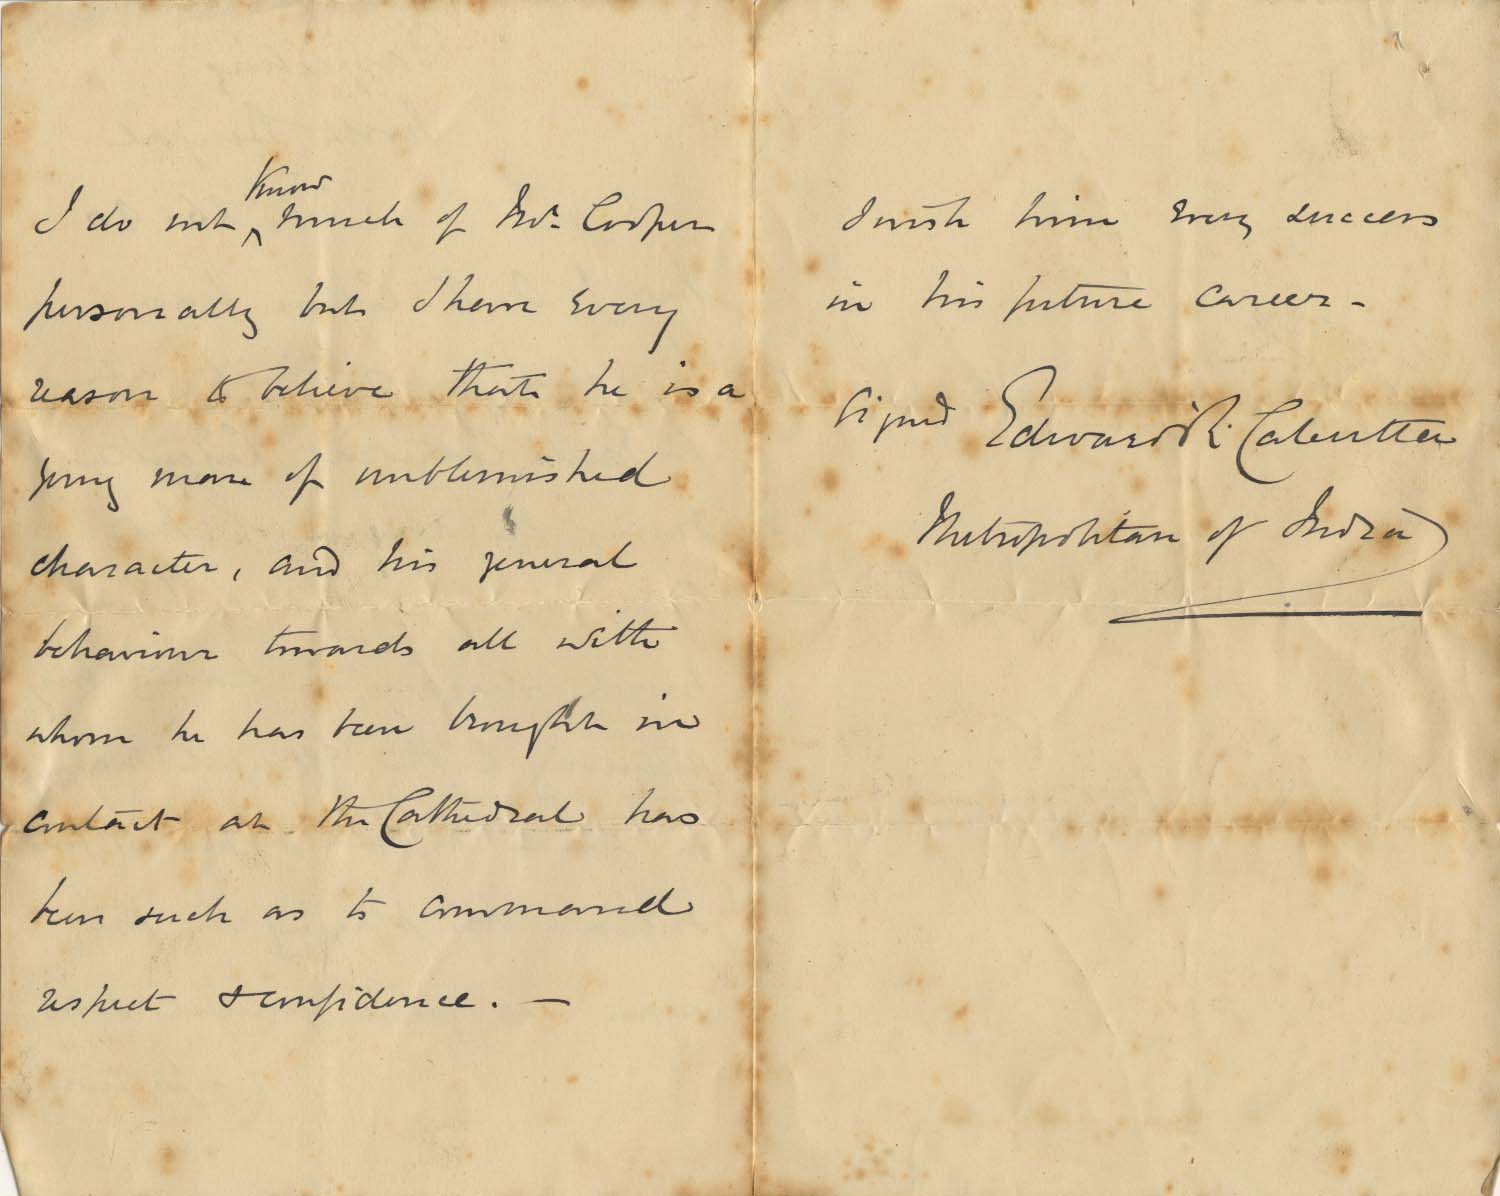 I do not know much of Mr. Cooper
personally but I have every
reason to believe that he is a
young man of unblemished
character, and his general
behaviour towards all with
whom he has been brought in
contact at the Cathedral has
been such as to command
respect & confidence. —
I wish him every success
in his future career –
Signed Edward R. Calcutta
Metropolitan of India